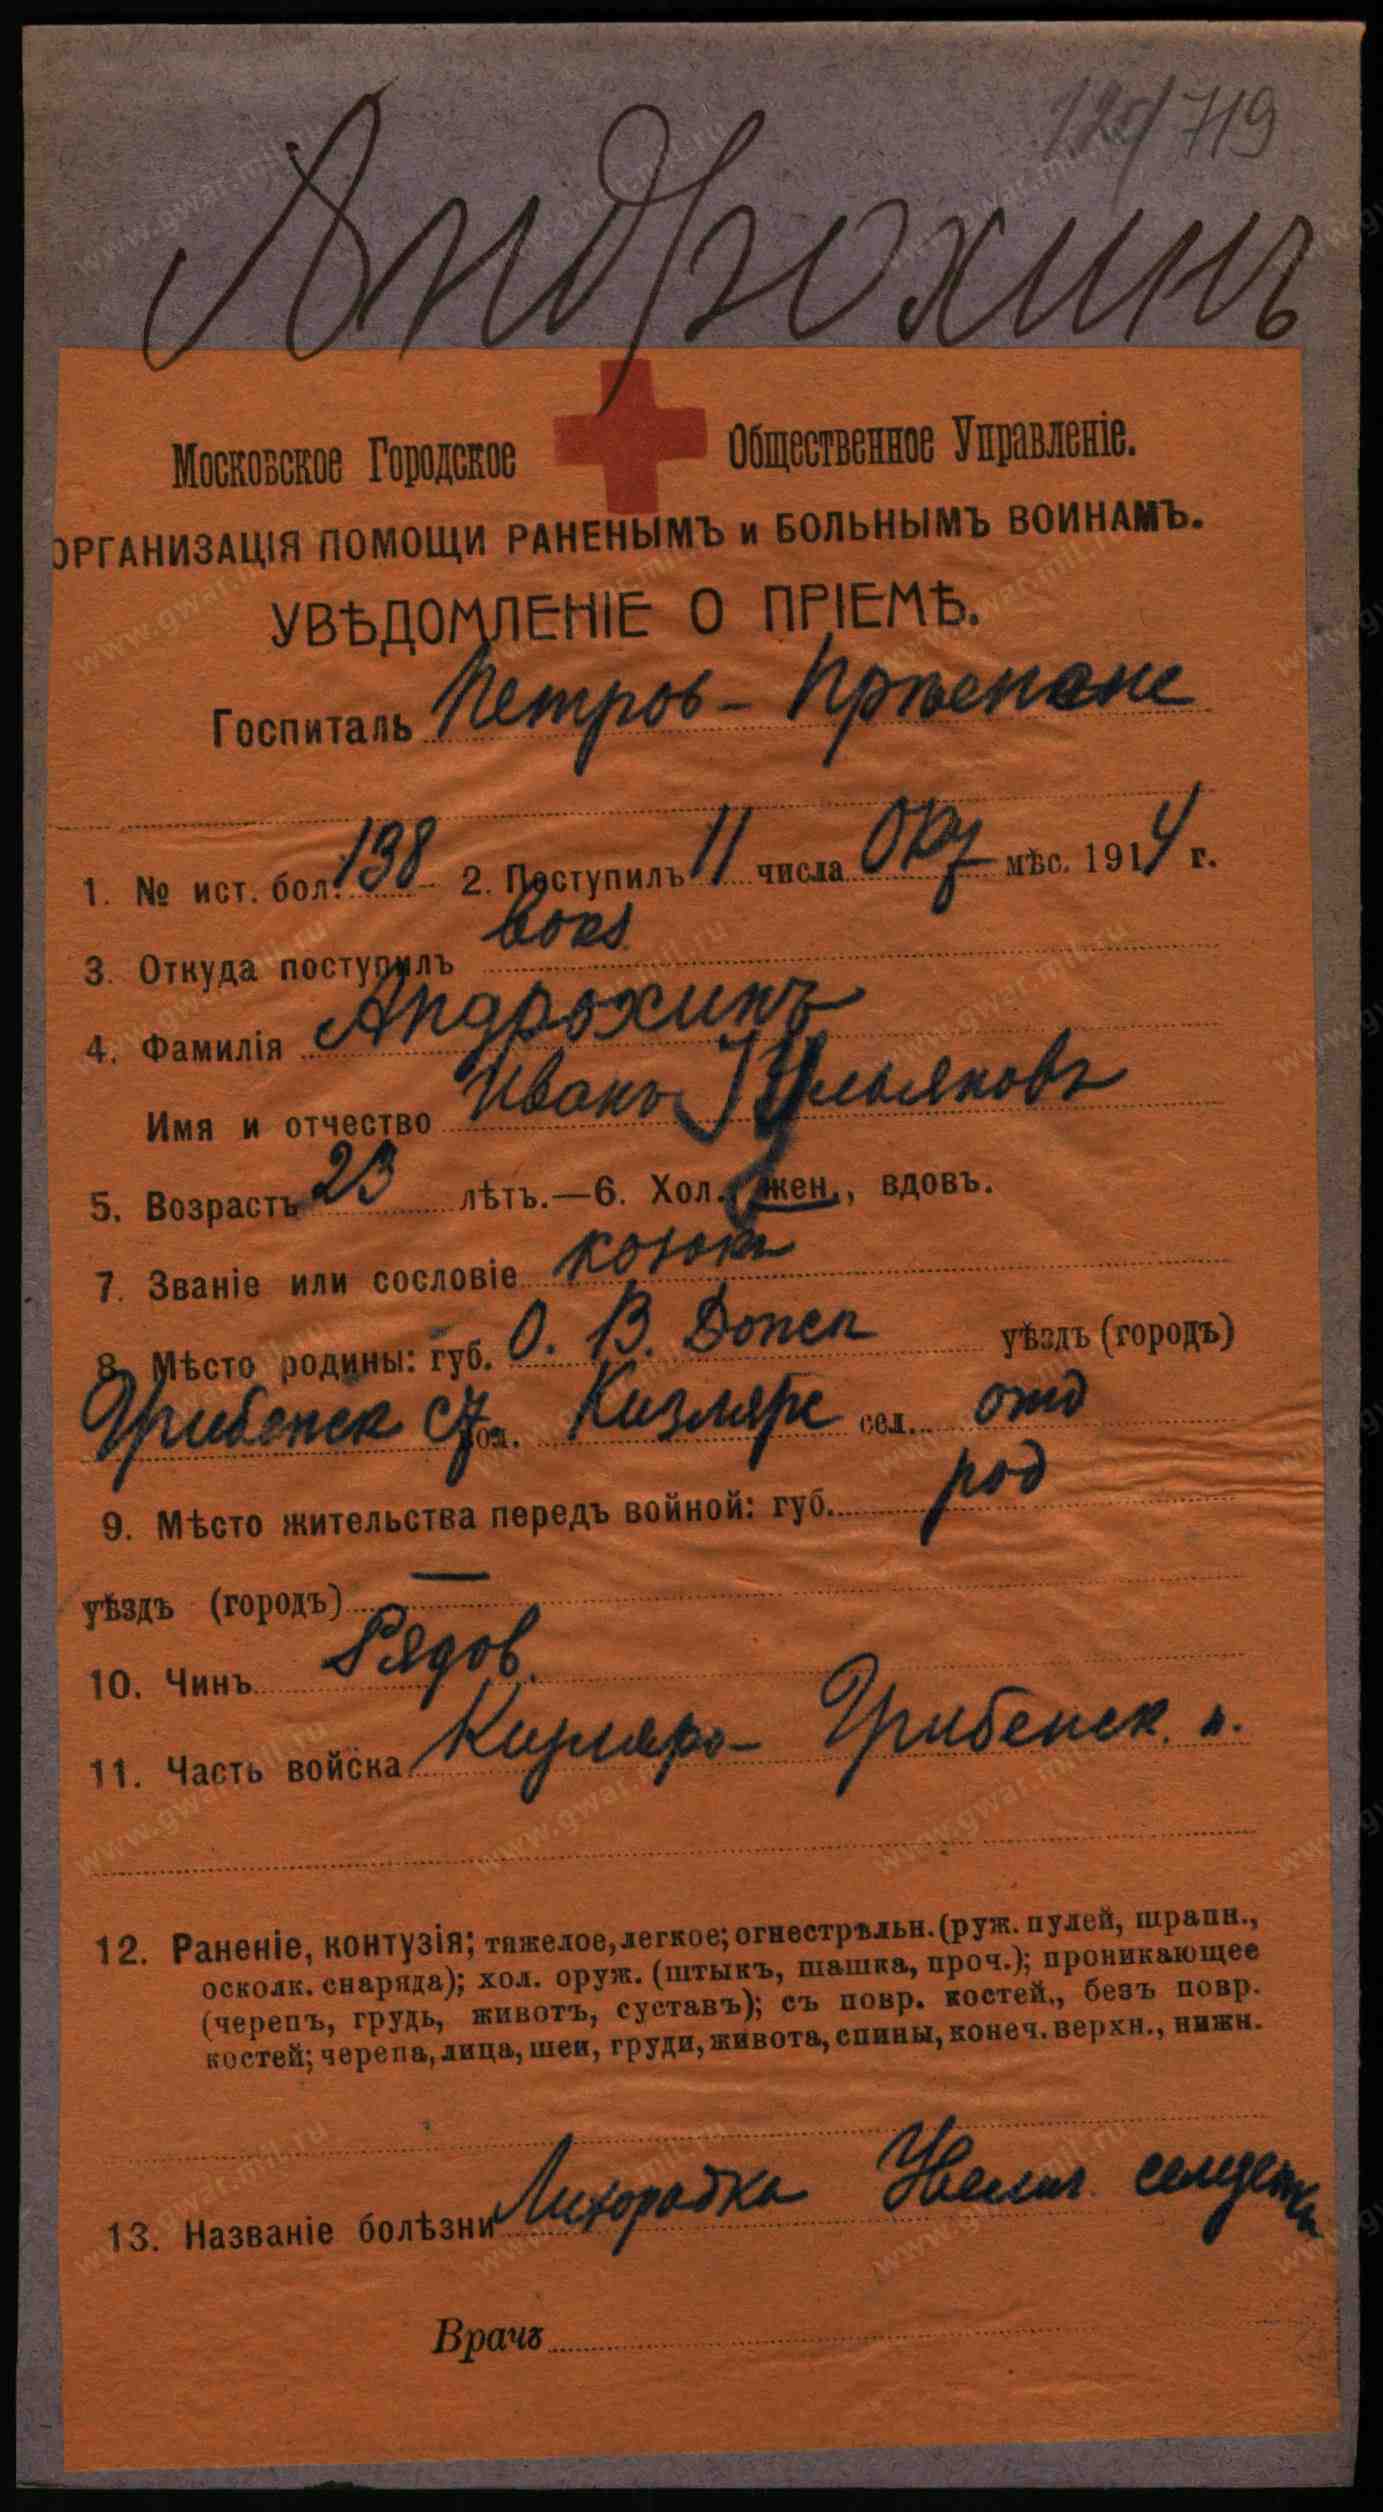 719
Андрохинъ
Московское Городское Общественное Управленіе.
ОРГАНИЗАЦІЯ ПОМОЩИ РАНЕНЫМЪ и БОЛЬНЫМЪ ВОИНАМЪ.
УВѢДОМЛЕНІЕ О ПРІЕМѢ.
Госпиталь Петров-
1. № ист. бол. 138 2. Поступилъ 11 числа Окт мѣс. 1914 г.
3. Откуда поступилъ вокз
4. Фамилія Андрохинъ
Имя и отчество Иванъ Ульяновъ
5. Возрастъ 23 лѣтъ.—6. Хол., жен., вдовъ.
7. Званіе или сословіе
8. Мѣсто родины: губ. О. В. Донск уѣздъ (городъ)
Грибенск ст вол. Кизлярс сел. отд
9. Мѣсто жительства передъ войной: губ. род
уѣздъ (городъ) —
10. Чинъ Рядов.
11. Часть войска Кизляро- Грибенск. п.
12. Раненіе, контузія; тяжелое, легкое; огнестрѣльн. (руж. пулей, шрапн.,
осколк. снаряда); хол. оруж. (штыкъ, шашка, проч.); проникающее
(черепъ, грудь, животъ, суставъ); съ повр. костей., безъ повр.
костей; черепа, лица, шеи, груди, живота, спины, конеч. верхн., нижн.
13. Названіе болѣзни Лихорадка
Врачъ
www.gwar.mil.ru